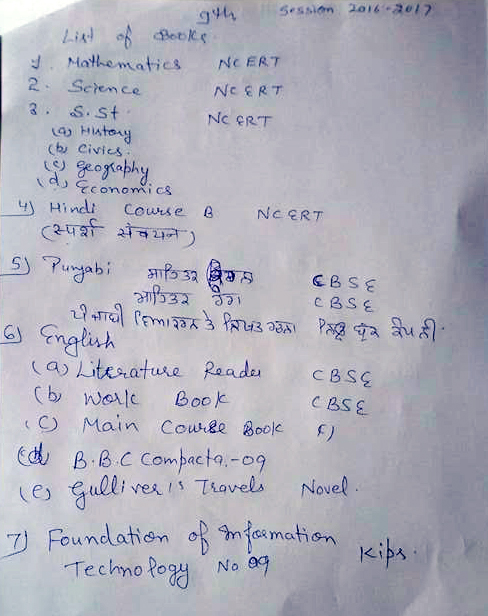 9th Session 2016-2017
List of Books
1. Mathematics NCERT
2. Science NCERT
3. S.St. NCERT
(a) History
(b) Civics.
(c) geography
(d) Economics
4) Hindi Course B NCERT
(स्पर्श संचयन)
5) Punjabi ਸਾਹਿਤਕ CBSE
ਸਾਹਿਤਕ ਰੰਗ CBSE
ਪੰਜਾਬੀ ਵਿਆਕਰਨ ਤੇ ਲਿਖਤ ਰਚਨਾ ਬੁੱਕ ਕੰਪਨੀ.
6) English
(a) Literature Reader CBSE
(b) Work Book CBSE
(c) Main Course Book
(d) B.B.C Compacta.-09
(e) Gulliver's Travels Novel.
7) Foundation of Information Kips.
Technology No 09